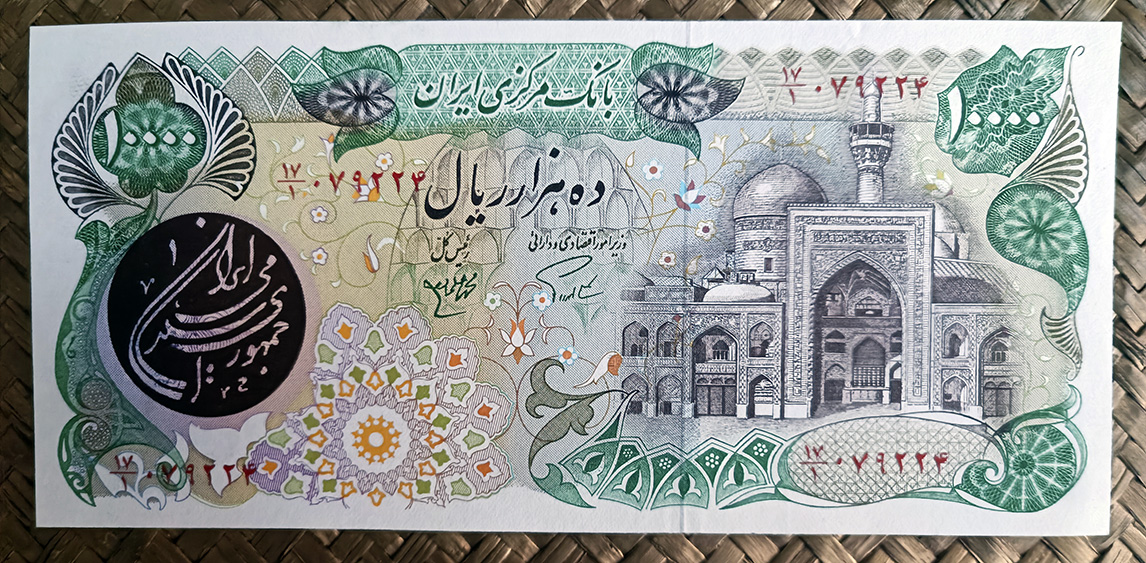 بانک مرکزی ایران
۱۰۰۰۰
۱۰۰۰۰
۱۷/۱ ۰۷۹۲۲۴
۱۷/۱ ۰۷۹۲۲۴
ده هزار ریال
وزیر امور اقتصادی و دارائی
رئیس کل
جمهوری اسلامی ایران
۱۷/۱ ۰۷۹۲۲۴
۱۷/۱ ۰۷۹۲۲۴